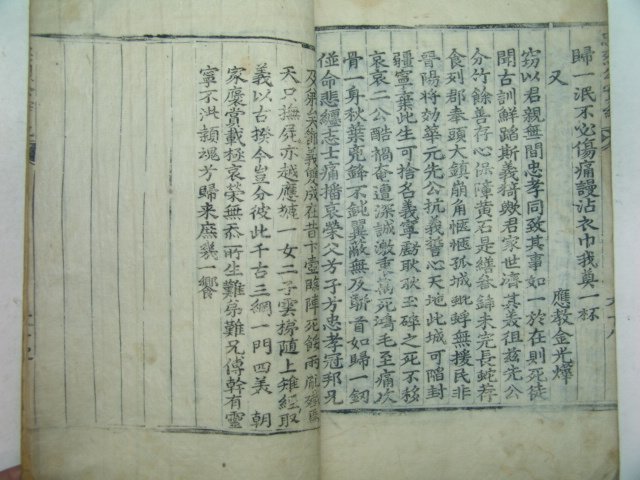 歸一泯不必傷痛謾沾衣巾我奠一杯
又
應敎金光煒
窃以君親無間忠孝同致其事如一於在則死徒
聞古訓鮮蹈斯義猗歟君家世濟其義祖玆先公
分竹餘善存心保障黃石是繕畚鍤未完長蛇荐
食列郡奉頭大鎭崩角惴惴孤城蚍蜉無援民非
晉陽將効華元先公抗義誓心天地此城可陷封
疆寧棄此生可捨名義寧虧耿耿玉碎之死不移
哀哀二公酷禍奄遭深誠激重萬死鴻毛至痛次
骨一身秋葉兎鋒不鈍翼蔽無及聯首如歸一釰
倂命悲纏志士痛搢哀榮父芳子芳忠孝冠邦兄
及無
義變成在昔卞壼臨陣死餘兩胤
天只撫屍亦越應據一女二子雲搏隨上雉經取
義以古揆今豈分彼此千古三綱一門四義 朝
家褒賞載極哀榮無忝所生難弟難兄傳幹有靈
寧不洪顙魂芳歸来庶幾一饗